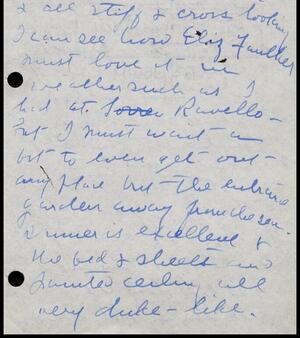 & all stiff & cross looking
I can see how Eliz
must love it in
weather such as I
had at Sorren Ravello -
But I must wait a
bit to even get out -
any place but - the entrance
garden away from the sea.
Dinner is excellent &
the bed & sheets and
painted ceiling all
very duke - like.